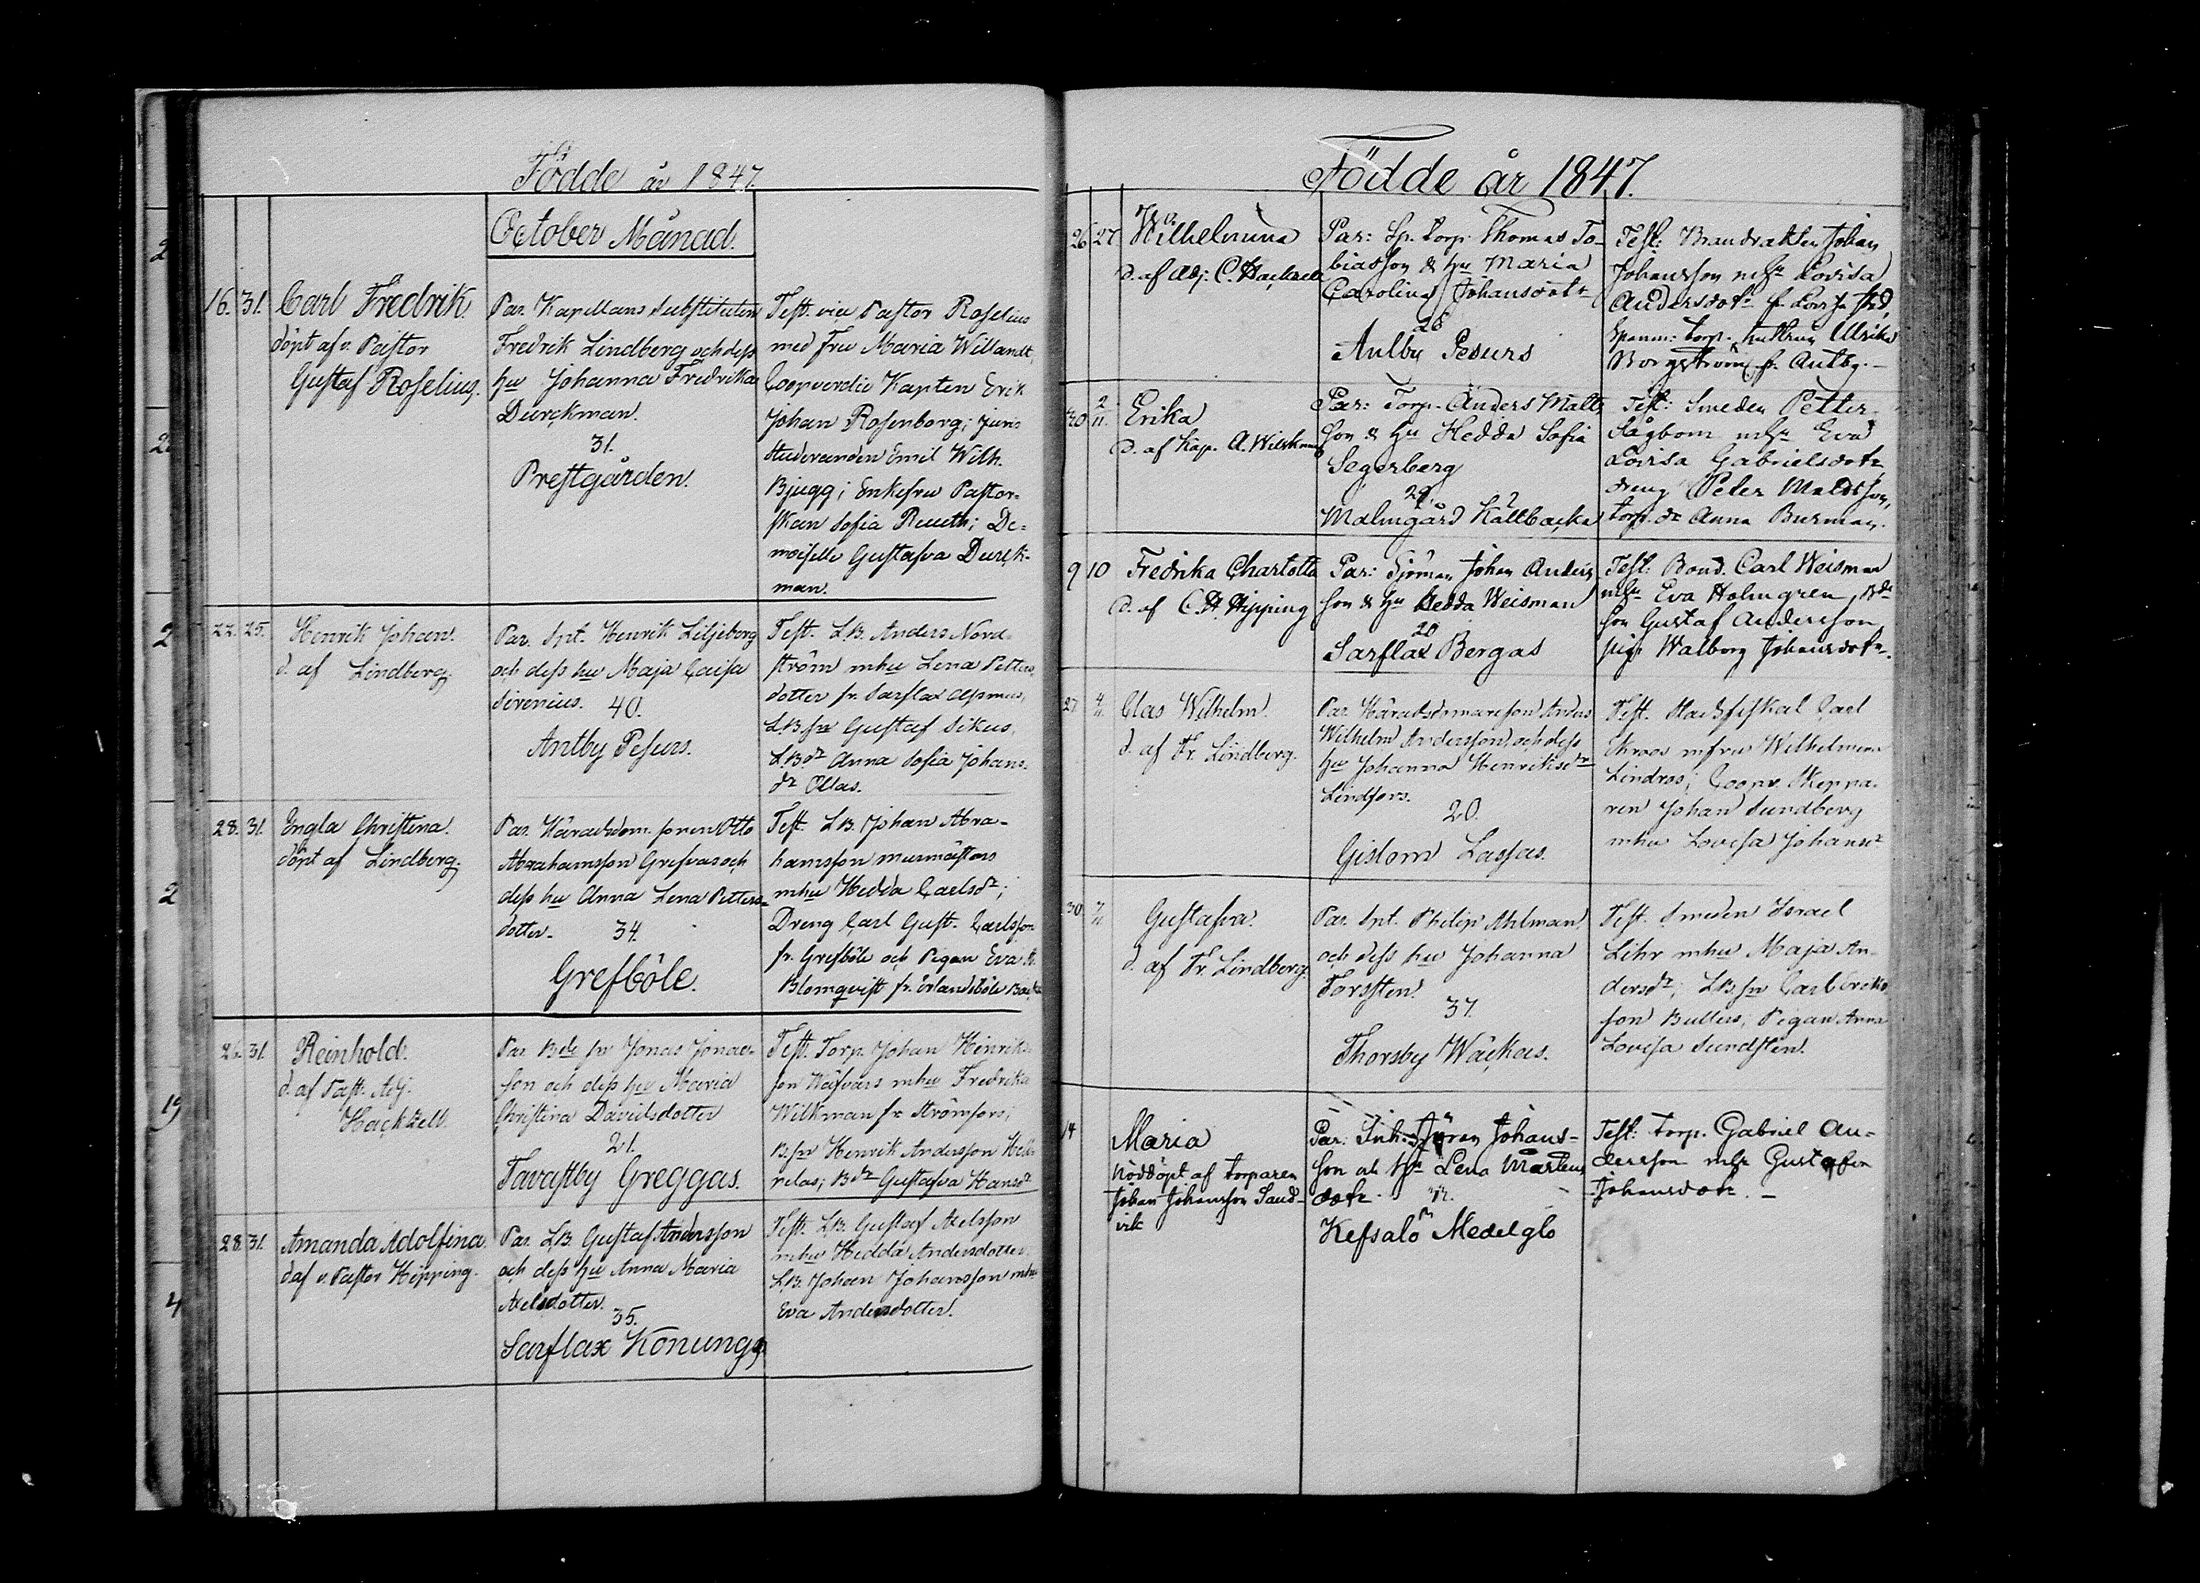 Födde år 1847.
October Månad.
16. 31. Carl Fredrik.
döpt af v. Pastor
Gustaf Roselius.
Par. Kapellans substituten
Fredrik Lindberg och dess
hu Johanna Fredrika
Durckman.
31.
Prestgården.
Test. vice Pastor Roselius
med Fru Maria Willandt,
Coopverdie Kapten Erik
Johan Rosenborg; juris
studeranden Emil Wilh.
Bjugg; Enkefru Pastor-
skan Sofia Reuth; De-
moiselle Gustafva Durck-
man.
22. 25. Henrik Johan.
d. af Lindberg.
Par. Spt. Henrik Liljeberg
och dess hu Maja Caisa
Sirenius. 40.
Antby Pesurs.
Test. LB. Anders Nord-
ström mhu Lena Petters
dotter fr. Sarflax
LB.sn Gustaf Sikus,
LBdr Anna Sofia Johans-
dr Ollas.
28. 31. Engla Christina.
döpt af Lindberg.
Par. Häradsdom. sonen Otto
Abrahamsson Grefvas och
dess hu Anna Lena Petters-
dotter. 34.
Grefböle.
Test. LB. Johan Abra-
hamsson murmästars
mhu Hedda Carlsdr;
Dreng Carl Gust. Carlsson
fr. Grefböle och Pigan Eva
Blomqvist fr.
26. 31. Reinhold.
d. af Past. Adj.
Hackzell.
Par. Bde sn Jonas Jonas-
son och dess hu Maria
Christina Davidsdotter
21.
Tavastby Greggas.
Test. Torp. Johan Hinriks-
son mhu Fredrika
Wilkman fr. Strömfors;
B.sn Henrik Andersson
Bdr Gustafva Hansdr
28. 31. Amanda Adolfina.
d af v. Pastor Hipping.
Par. LB. Gustaf Andersson
och dess hu Anna Maria
Axelsdotter.
35.
Sarflax Konungs
Test. LB. Gustaf Axelsson
mhu Hedda Andersdotter.
LB. Johan Johansson mhu
Eva Andersdotter.
Födde år 1847.
26 27 Wilhelmina
d. af Adj. C. Hackzell
Par: Sp. Torp. Thomas To-
biasson & hu Maria
Carolina Johansdotr
28
Antby Pesurs
Test: Johan
Johansson mhr Lovisa
Andersdotr
torp. Ulrika
Borgström fr. Antby.
30 2/11. Erika
d. af Kap. A. Wilkman
Par: Torp. Anders Matts
son & hu Hedda Sofia
Segerberg
29.
Malmgård Källbacka
Test: Smeden Petter
Sågbom mhr Eva
Lovisa Gabrielsdotr
dreng Peter Mattsson,
torp. dr Anna Burman.
9 10 Fredrika Charlotta
d. af C. H. Hipping
Par: Sjöman Johan Anders
son & hu Hedda Weisman
20
Sarflax Bergas
Test: Bond. Carl Weisman
mhu Eva Holmgren, Bde
son Gustaf Andersson
pig. Walborg Johansdotr.
27 4/11 Clas Wilhelm.
d. af Fr. Lindberg.
Par. Häradsdomareson Anders
Wilhelm Andersson, och dess
hu Johanna Henriksdr
Lindfors.
20.
Gislom Lassas.
Test. Stadsfiskal Carl
mfru Wilhelmina
Lindros; Coopv. Skeppa-
ren Johan Sundberg
mhu Lovisa Johansdr
30 7/11 Gustafva.
d. af Fr. Lindberg.
Par. Spt. Philip Ahlman
och dess hu Johanna
Forssten.
37.
Thorsby Wäckas.
Test. Smeden Israel
Lihr mhu Maja An-
dersdr; LB.sn Carl Eriks
son Bullers, Pigan Anna
Lovisa Sundsten.
14 Maria
Nöddöpt af torparen
Johan Johansson Sand-
vik
Par: Inh. Jöran Johans-
son och hu Lena Mårtens
dotr.
Kefsalo Medelglo
Test: Torp. Gabriel An-
dersson mhr Gustafva
Johansdotr. –